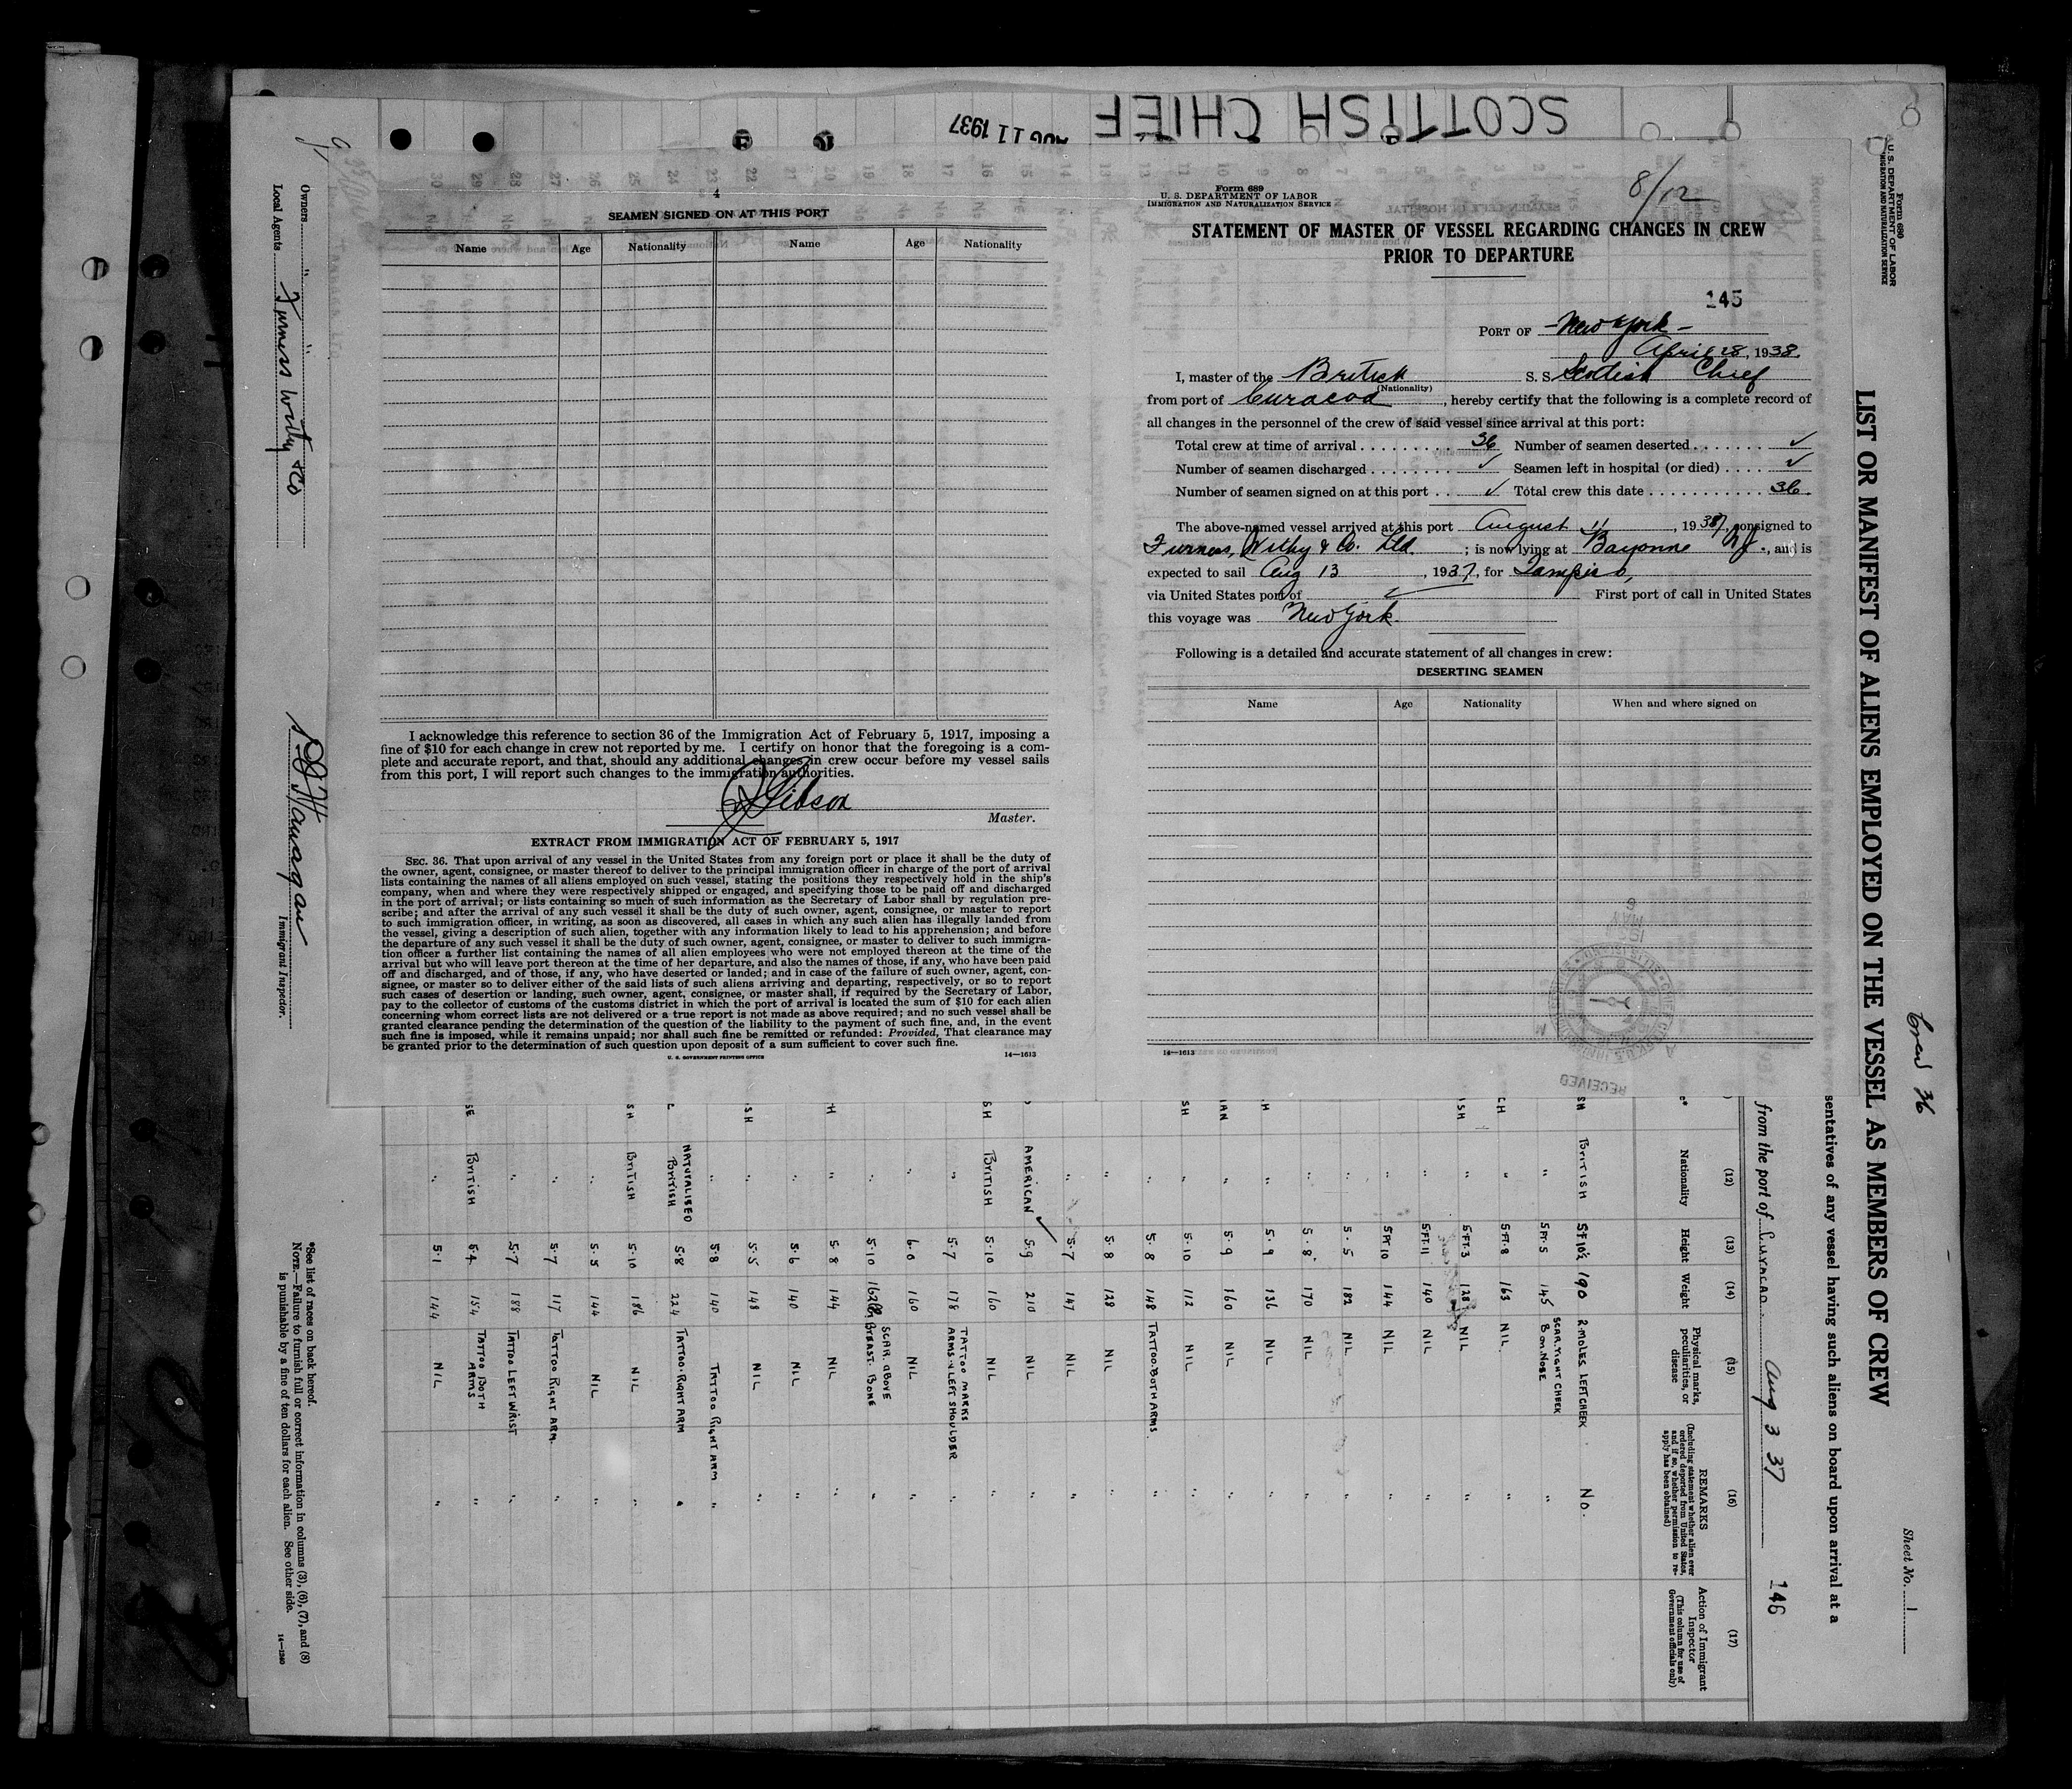 SCOTTISH CHIEF
AUG 11 1937
4
SEAMEN SIGNED ON AT THIS PORT
Name Age Nationality Name Age Nationality
I acknowledge this reference to section 36 of the Immigration Act of February 5, 1917, imposing a
fine of $10 for each change in crew not reported by me. I certify on honor that the foregoing is a com-
plete and accurate report, and that, should any additional changes in crew occur before my vessel sails
from this port, I will report such changes to the immigration authorities.
Gibson
Master.
EXTRACT FROM IMMIGRATION ACT OF FEBRUARY 5, 1917
SEC. 36. That upon arrival of any vessel in the United States from any foreign port or place it shall be the duty of
the owner, agent, consignee, or master thereof to deliver to the principal immigration officer in charge of the port of arrival
lists containing the names of all aliens employed on such vessel, stating the positions they respectively hold in the ship's
company, when and where they were respectively shipped or engaged, and specifying those to be paid off and discharged
in the port of arrival; or lists containing so much of such information as the Secretary of Labor shall by regulation pre-
scribe; and after the arrival of any such vessel it shall be the duty of such owner, agent, consignee, or master to report
to such immigration officer, in writing, as soon as discovered, all cases in which any such alien has illegally landed from
the vessel, giving a description of such alien, together with any information likely to lead to his apprehension; and before
the departure of any such vessel it shall be the duty of such owner, agent, consignee, or master to deliver to such immigra-
tion officer a further list containing the names of all alien employees who were not employed thereon at the time of the
arrival but who will leave port thereon at the time of her departure, and also the names of those, if any, who have been paid
off and discharged, and of those, if any, who have deserted or landed; and in case of the failure of such owner, agent, con-
signee, or master so to deliver either of the said lists of such aliens arriving and departing, respectively, or so to report
such cases of desertion or landing, such owner, agent, consignee, or master shall, if required by the Secretary of Labor,
pay to the collector of customs of the customs district in which the port of arrival is located the sum of $10 for each alien
concerning whom correct lists are not delivered or a true report is not made as above required; and no such vessel shall be
granted clearance pending the determination of the question of the liability to the payment of such fine, and, in the event
such fine is imposed, while it remains unpaid; nor shall such fine be remitted or refunded: Provided, That clearance may
be granted prior to the determination of such question upon deposit of a sum sufficient to cover such fine.
U. S. GOVERNMENT PRINTING OFFICE 14—1613
Form 689
U. S. DEPARTMENT OF LABOR
IMMIGRATION AND NATURALIZATION SERVICE
8/12
STATEMENT OF MASTER OF VESSEL REGARDING CHANGES IN CREW
PRIOR TO DEPARTURE
145
PORT OF New York
April 28, 1938.
I, master of the British S. S. Scottish Chief
(Nationality)
from port of Curacoa, hereby certify that the following is a complete record of
all changes in the personnel of the crew of said vessel since arrival at this port:
Total crew at time of arrival 36 Number of seamen deserted ✓
Number of seamen discharged ✓ Seamen left in hospital (or died) ✓
Number of seamen signed on at this port ✓ Total crew this date 36.
The above-named vessel arrived at this port August 11, 1937, consigned to
Furness, Withy & Co. Ltd. ; is now lying at Bayonne NJ., and is
expected to sail Aug 13, 1937, for Tampico,
via United States port of ✓ First port of call in United States
this voyage was New York.
Following is a detailed and accurate statement of all changes in crew:
DESERTING SEAMEN
Name Age Nationality When and where signed on
14—1613
RECEIVED
Form 680
U. S. DEPARTMENT OF LABOR
IMMIGRATION AND NATURALIZATION SERVICE
Crew 36
Sheet No. 1
LIST OR MANIFEST OF ALIENS EMPLOYED ON THE VESSEL AS MEMBERS OF CREW
sentatives of any vessel having such aliens on board upon arrival at a
from the port of CURACAO. Aug 3 37 146
(12) (13) (14) (15) (16) (17)
Nationality Height Weight Physical marks, peculiarities, or disease REMARKS (Including statement whether alien ever ordered deported from United States, and if so, whether permission to re-apply has been obtained) Action of Immigrant Inspector (This column for use of Government officials only)
BRITISH 5F 10½ 190 2 MOLES LEFT CHEEK No.
" 5FT. 5 145 SCAR. RIGHT CHEEK B on. NOSE "
" 5FT. 8 163 NIL "
" 5FT. 3 128 NIL "
" 5FT 11 140 NIL "
" 5FT 10 144 NIL "
" 5.5 182 NIL "
" 5.8 170 NIL "
" 5.9 136 NIL "
" 5.9 160 NIL "
" 5.10 112 NIL "
" 5.8 148 TATTOO. BOTH ARMS. "
" 5.8 128 NIL "
" 5.7 147 NIL "
AMERICAN 5.9 210 NIL "
BRITISH 5.10 160 NIL "
" 5.7 178 TATTOO MARKS ARMS & LEFT SHOULDER "
" 6.0 160 NIL "
" 5.10 162 SCAR ABOVE BREAST. BONE "
" 5.8 144 NIL "
" 5.6 140 NIL "
" 5.5 148 NIL "
" 5.8 140 TATTOO RIGHT ARM "
NATURALISED BRITISH 5.8 224 TATTOO. RIGHT ARM "
BRITISH 5.10 186 NIL "
" 5.5 144 NIL "
" 5.7 117 TATTOO RIGHT ARM. "
" 5.7 188 TATTOO LEFT WRIST "
BRITISH 5.4 154 TATTOO BOTH ARMS "
" 5.1 144 NIL "
Owners " "
Local Agents Furness Withy & Co
Immigrant Inspector.
*See list of races on back hereof.
NOTE.—Failure to furnish full or correct information in columns (3), (6), (7), and (8)
is punishable by a fine of ten dollars for each alien. See other side.
14—1240